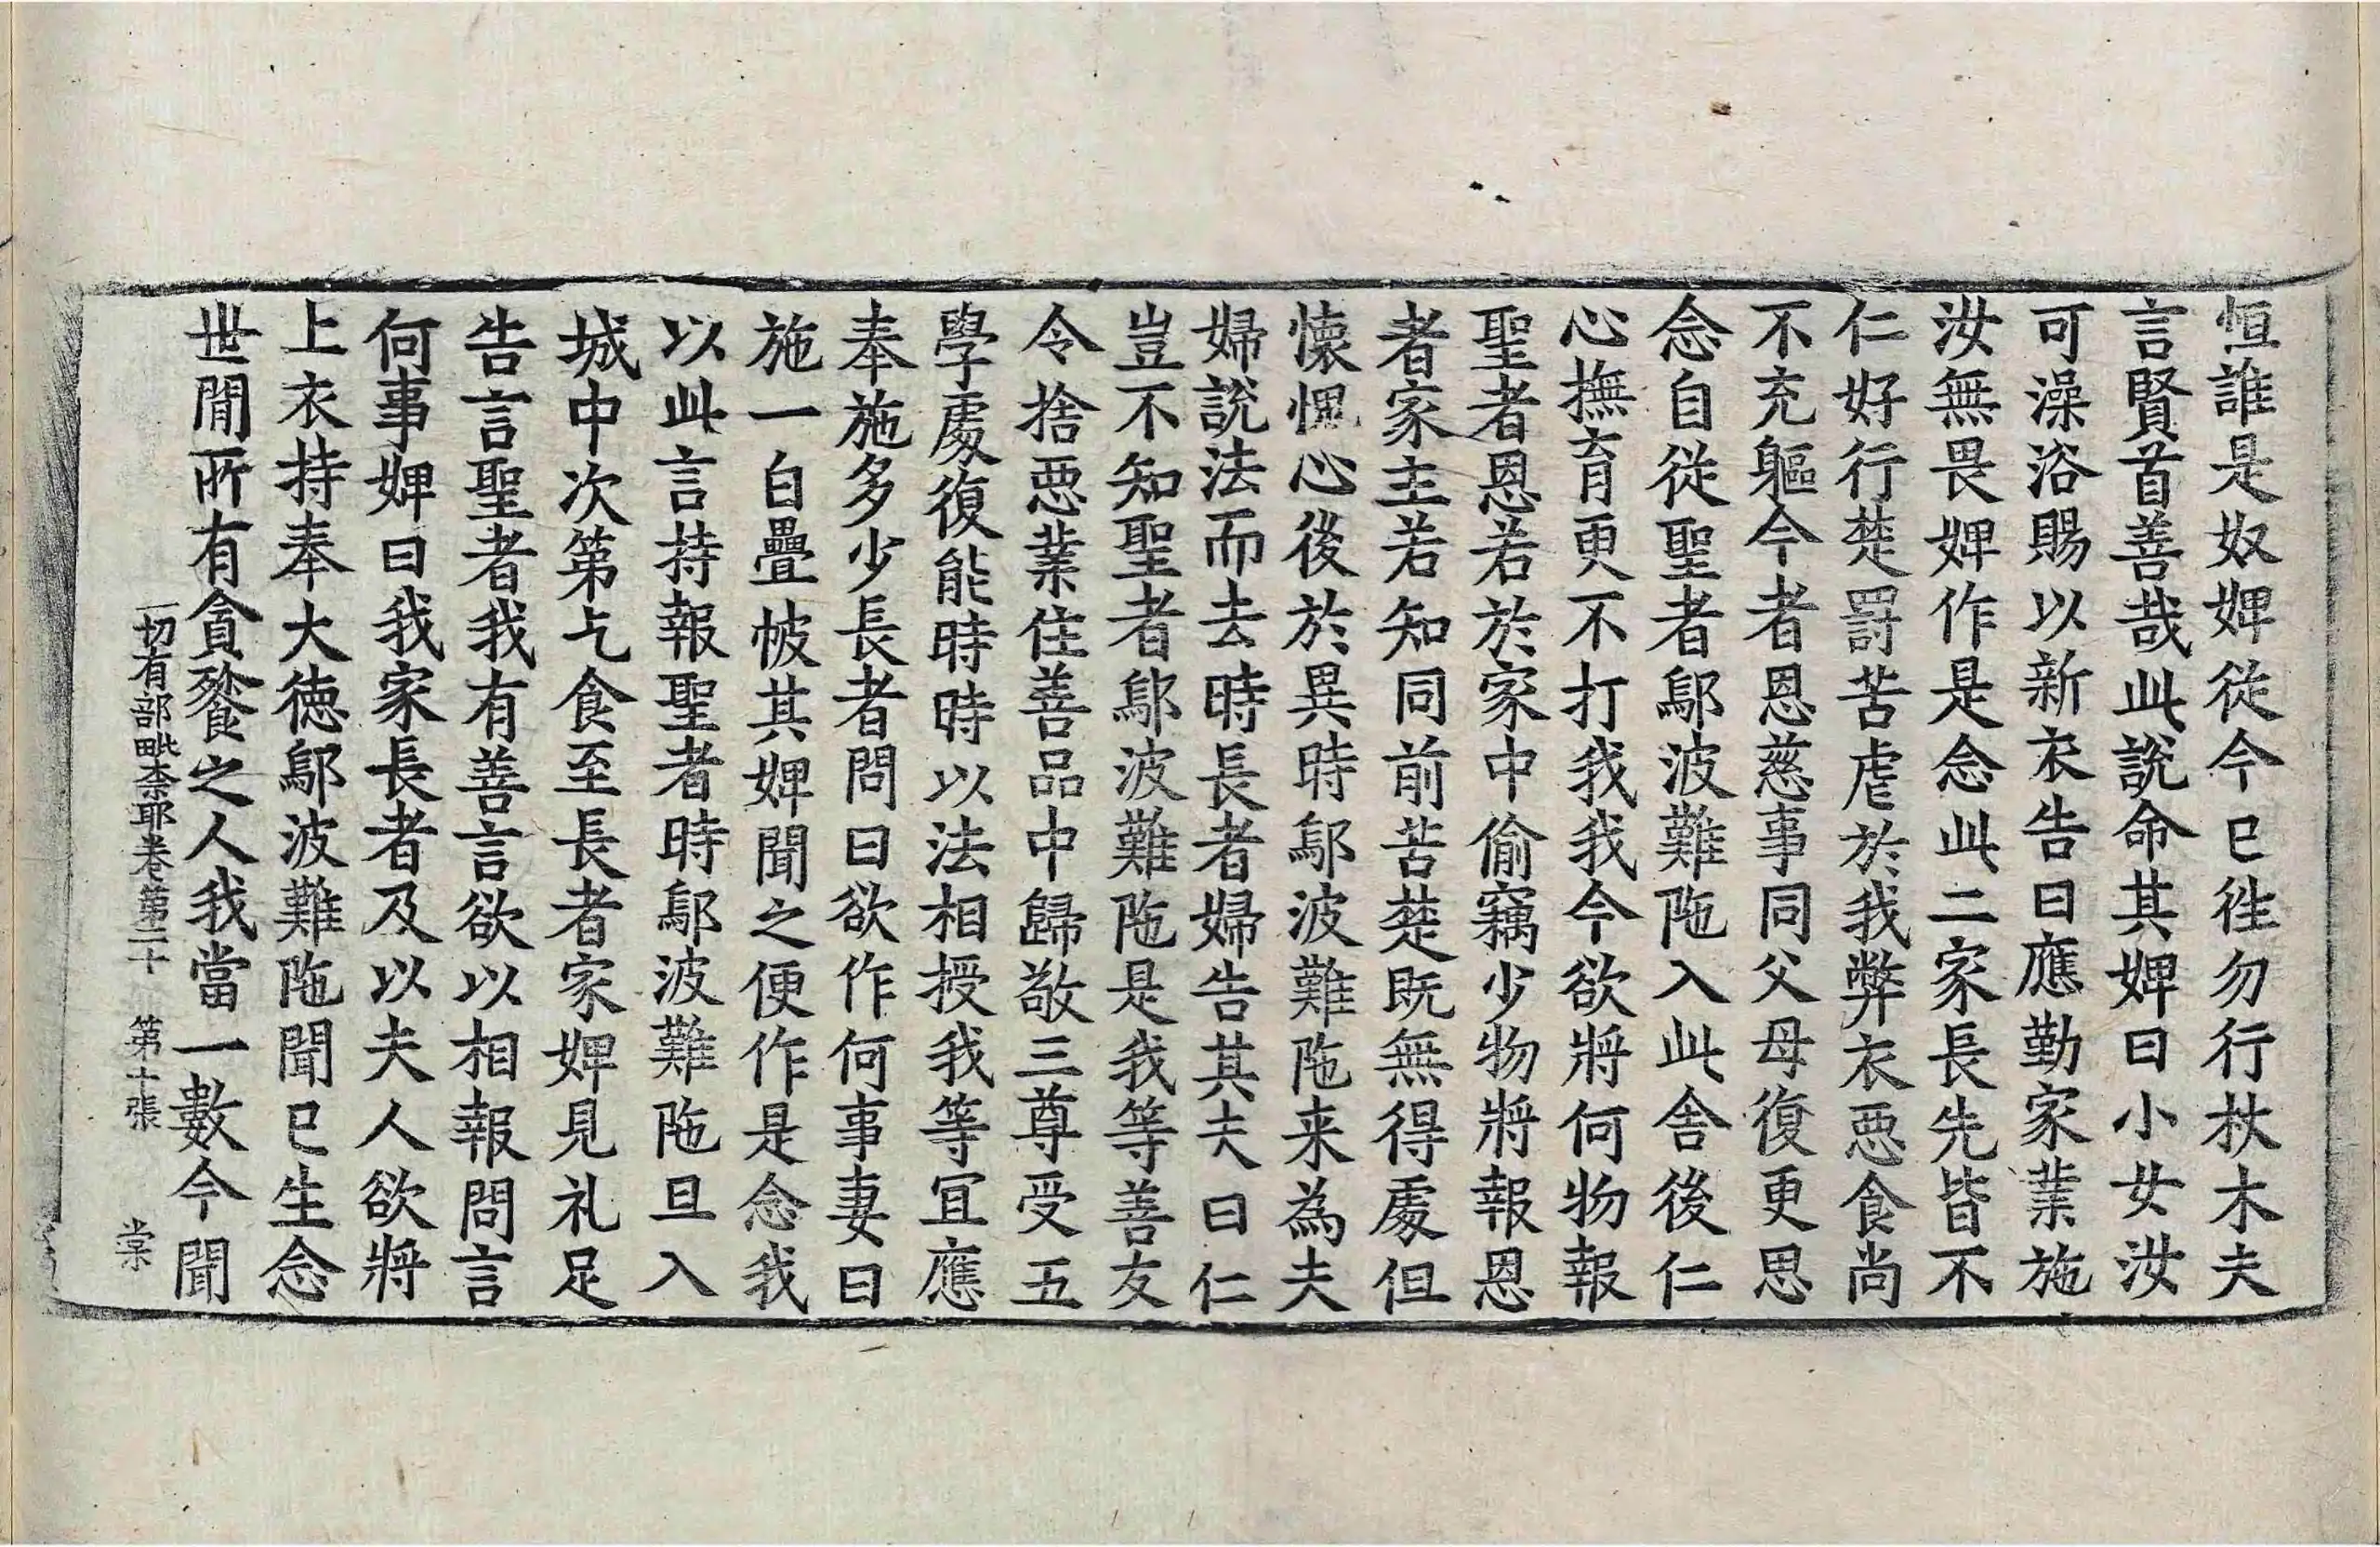 恒誰是奴婢從今已徃勿行杖木夫
言賢首善哉此說命其婢曰小女汝
可澡浴賜以新衣告曰應勤家業施
汝無畏婢作是念此二家長先皆不
仁好行楚罰苦虐於我弊衣惡食尚
不充軀今者恩慈事同父母復更思
念自從聖者鄔波難陁入此舍後仁
心撫育更不打我我今欲將何物報
聖者恩若於家中偷竊少物將報恩
者家主若知同前苦楚既無得處但
懷愧心後於異時鄔波難陁来為夫
婦說法而去時長者婦告其夫曰仁
豈不知聖者鄔波難陁是我等善友
令捨惡業住善品中歸敬三尊受五
學處復能時時以法相授我等宜應
奉施多少長者問曰欲作何事妻曰
施一白疊帔其婢聞之便作是念我
以此言持報聖者時鄔波難陁旦入
城中次第乞食至長者家婢見礼足
告言聖者我有善言欲以相報問言
何事婢曰我家長者及以夫人欲將
上衣持奉大德鄔波難陁聞已生念
世閒所有貪餮之人我當一數今聞
一切有部毗柰耶卷第二十 第十張 棠